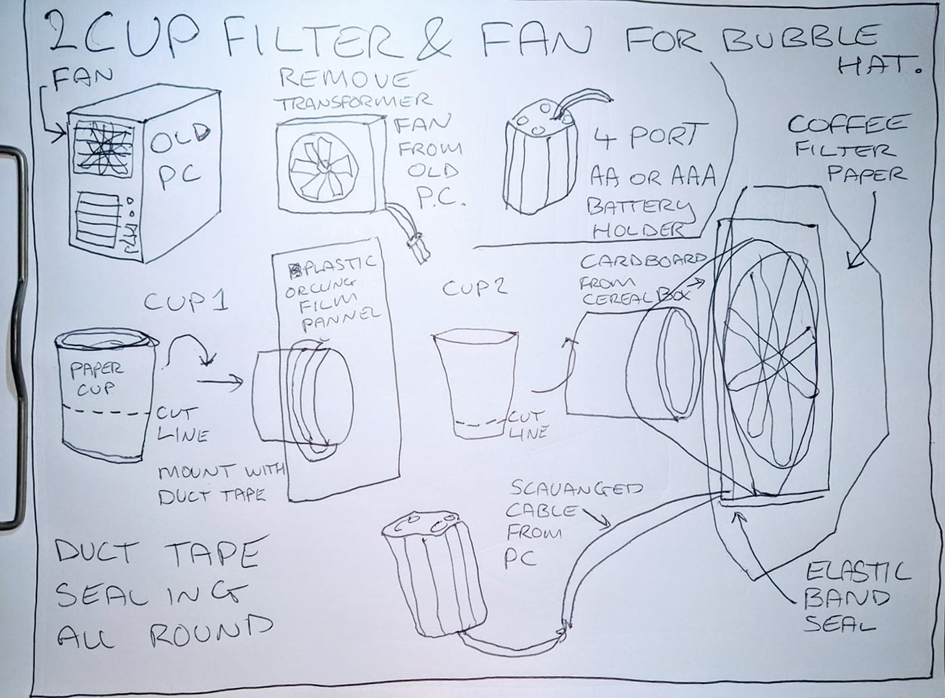 2 CUP FILTER & FAN FOR BUBBLE
HAT.
FAN
OLD
PC
REMOVE
TRANSFORMER
FAN
FROM
OLD
P.C.
4 PORT
AA OR AAA
BATTERY
HOLDER
COFFEE
FILTER
PAPER
CUP 1
PAPER
CUP
CUT
LINE
MOUNT WITH
DUCT TAPE
PLASTIC
OR CLING
FILM
PANNEL
CUP 2
CUT
LINE
CARDBOARD
FROM
CEREAL BOX
SCAVANGED
CABLE
FROM
PC
ELASTIC
BAND
SEAL
DUCT TAPE
SEALING
ALL ROUND